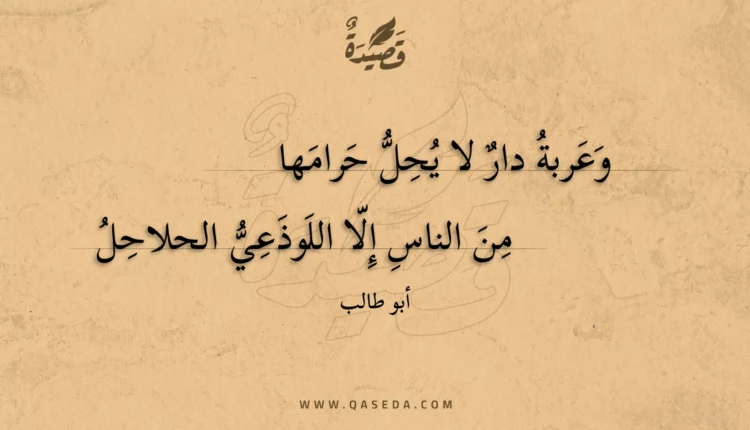 قَصِيْدَةٌ
وَعَربةُ دارٌ لا يُحِلُّ حَرامَها
مِنَ الناسِ إِلّا اللَوذَعِيُّ الحلاحِلُ
أبو طالب
WWW.QASEDA.COM